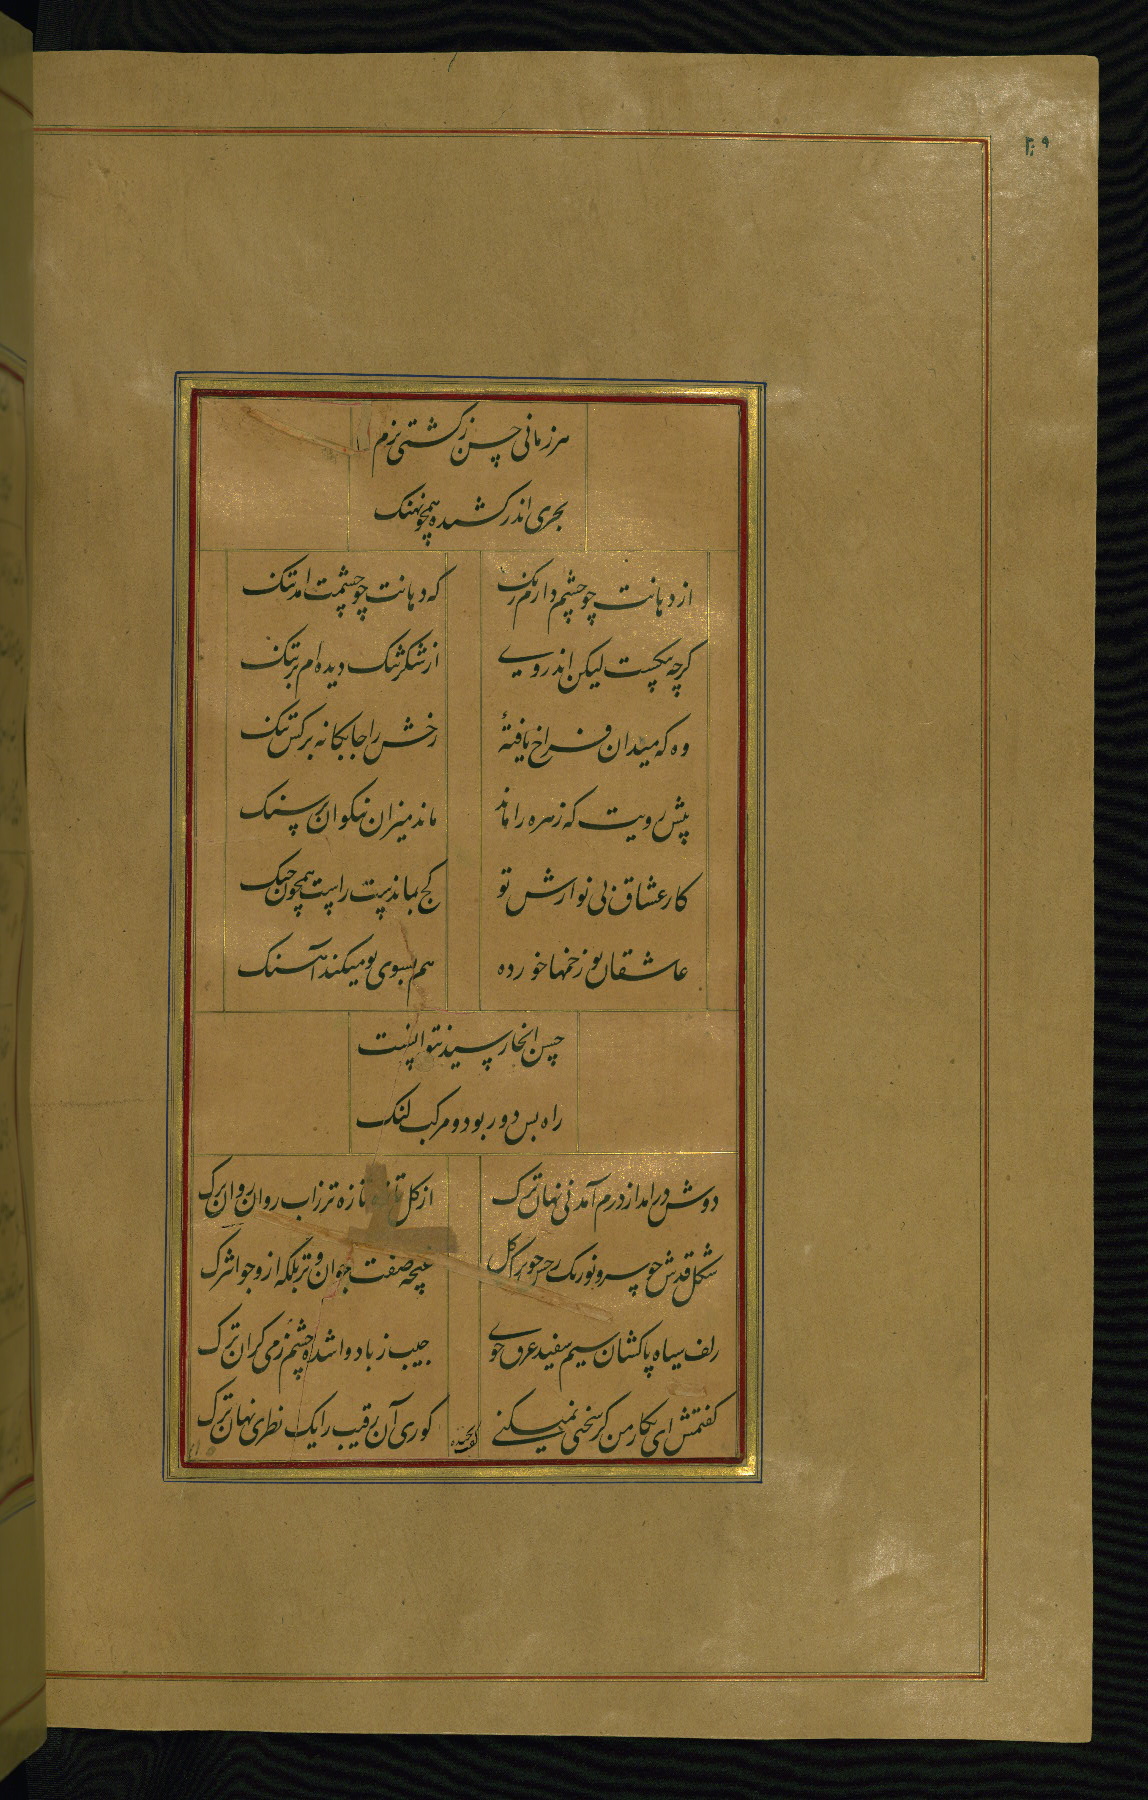 ۲۰۹
هر زمانی حسن ز کشتی بزم
بحری اندر کشیده همچو نهنک
از دهانت چو چشم دارم رنک
که دهانت چو چشمت امد تنک
کرچه هیچست لیکن اندر وی
از شکر تنک دیده ام بر تنک
وه که میدان فراخ یافتهٔ
رخش را جابکانه برکش تنک
پیش رویت که زهره را ماند
ماند میزان نیکوان بی سنک
کار عشاق بی نوازش تو
کج بماندست راست همچون چنک
عاشقان تو زخمها خورده
هم بسوی تو میکند آهنک
حسن انجا رسید نتوانست
راه بس دور بود و مرکب لنک
دوش درامد از درم آمدنی نهان ترک
از کل تازه تازه تر زاب روان روان ترک
شکل قدش جو سرو نو رنک رخش جو برک کل
غنچه صفت جوان و تر بلکه ازو جوانترک
زلف سیاه پاکشان سیم سفید عرق خوی
جیب ز باد وا شده چشم ز می کران ترک
کفتمش ای نکار من کر سخنی نمیکنی
کوری آن رقیب را یک نظری نهان ترک